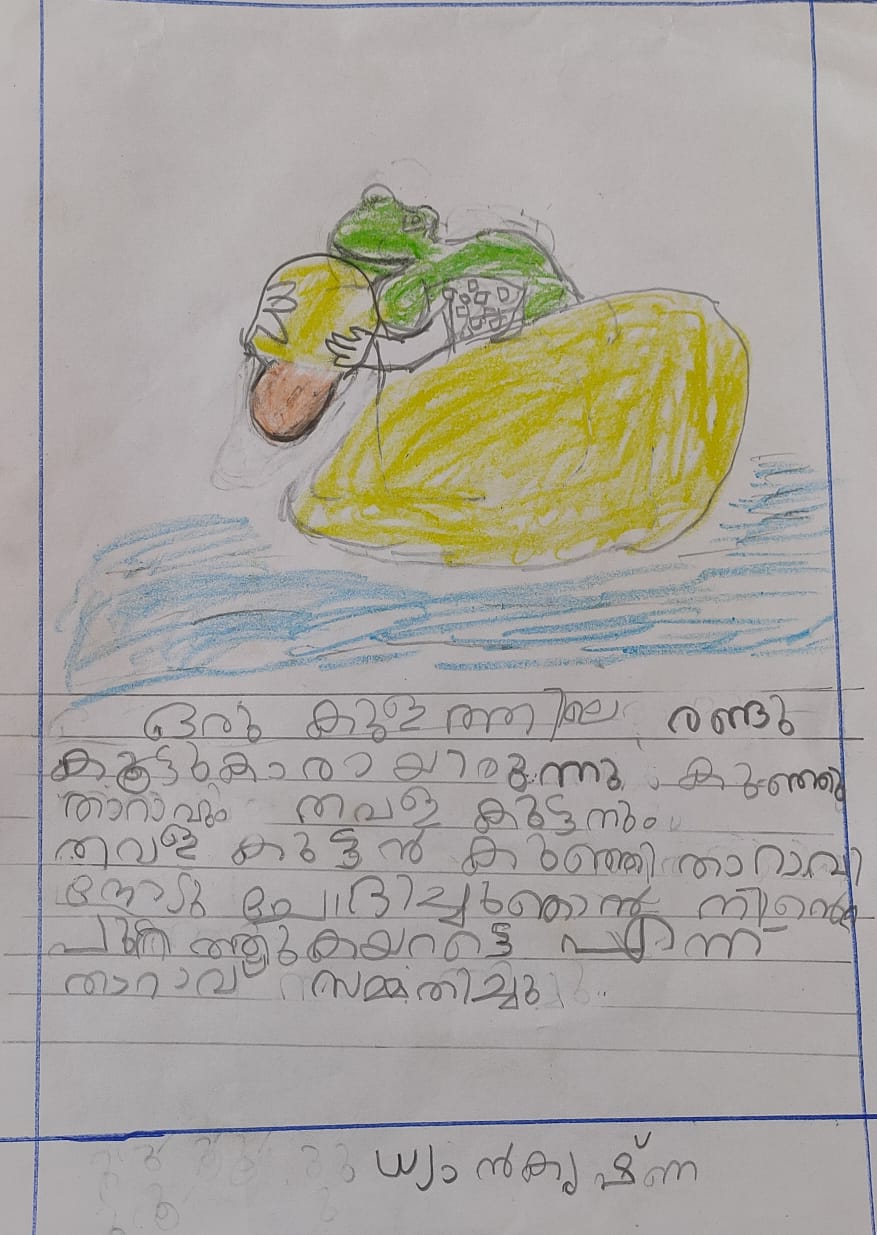 ഒരു കുളത്തിലെ രണ്ടു
കൂട്ടുകാരായിരുന്നു കുഞ്ഞു
താറാവും തവള കുട്ടനും
തവള കുട്ടൻ കുഞ്ഞി താറാവി
നോടു ചോദിച്ചു ഞാൻ നിൻ്റെ
പുറത്തു കയറട്ടെ എന്ന്
താറാവ് സമ്മതിച്ചു
ധ്യാൻകൃഷ്ണ